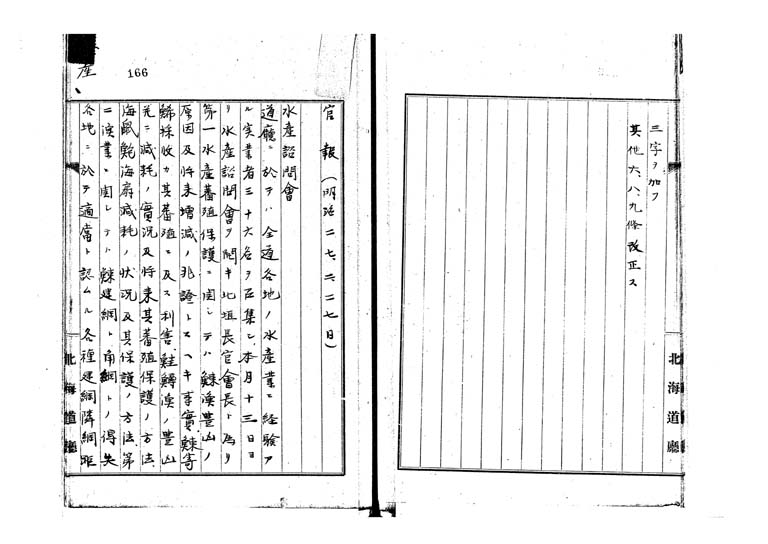 三字ヲ加フ
其他六、八、九條改正ス
北海道廳
産、
166
官報(明治二七、二、二七日)
水産諮問會
道廳ニ於テハ全道各地ノ水産業ニ経験ア
ル実業者三十六名ヲ召集シ本月十三日ヨ
リ水産諮問會ヲ開キ北垣長官會長ト為リ
第一水産蕃殖保護ニ関シテハ鰊漁豊凶ノ
原因及将来増減ノ兆證トスヘキ事實鰊寄
鯑採收カ其蕃殖ニ及ス利害、鮭鱒漁ノ豊凶
並ニ減耗ノ實況及将来其蕃殖保護ノ方法
海鼠鮑海扇減耗ノ状况及其保護ノ方法、第
二漁業ニ関シテハ鰊建網ト角網トノ得失
各地ニ於テ適當ト認ムル各種建網隣網距
北海道廳